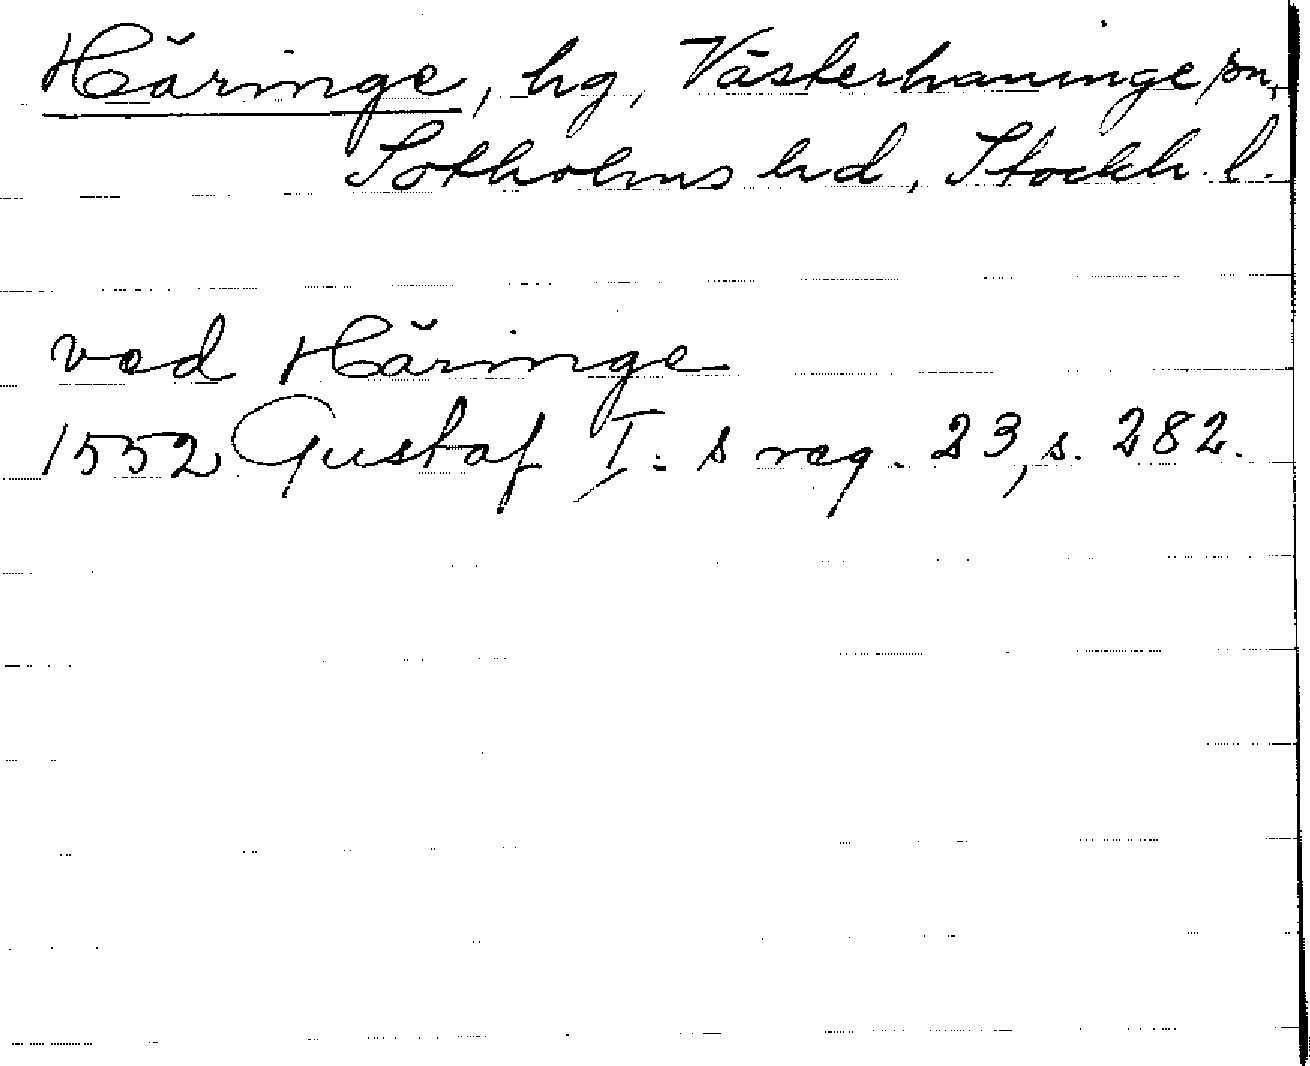 Häringe, hg, Västerhaninge sn,
Sotholms hd, Stockh. l.
ved Häringe
1552 Gustaf I:s reg. 23, s. 282.